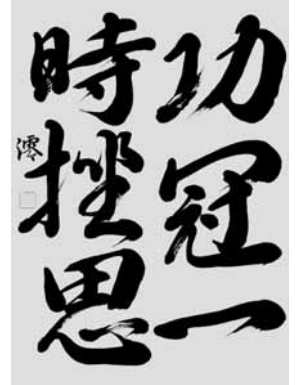 功冠一
時挫思
澪